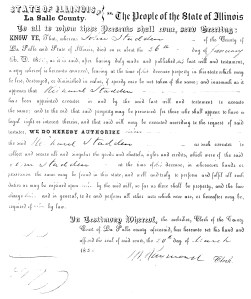 STATE OF ILLINOIS,
La Salle County.
The People of the State of Illinois
To all to whom these Presents shall come, Greeting:
KNOW YE, That
of the County of
La Salle and State of Illinois, died on or about the 26th day of January
A.D. 18
a copy whereof is hereunto annexed, leaving at the time of his decease property in this state which may
be lost, destroyed, or diminished in value, if speedy care be not taken of the same, and inasmuch as it
appears that Richard Stadden
has been appointed executor in and by the said last will and testament to execute
the same, and to the end that said property may be preserved for those who shall appear to have a
legal right or interest therein, and that said will may be executed according to the request of said
testator, WE DO HEREBY AUTHORISE
the said Richard Stadden as such executor to
collect and secure all and singular the goods and chattels, rights and credits, which were of the said
Stadden at the time of his decease, in whosesoever hands or
possession the same may be found in this state, and well and truly to perform and fulfil all such
duties as may be enjoined upon him by the said will, so far as there shall be property, and the law
charge him and in general, to do and perform all other acts which now are, or hereafter may be,
required of him by law.
In Testimony Whereof,
Clerk of the County
Court of La Salle county aforesaid, has hereunto set his hand and
affixed the seal of said court, this 10th day of March
18
Clerk